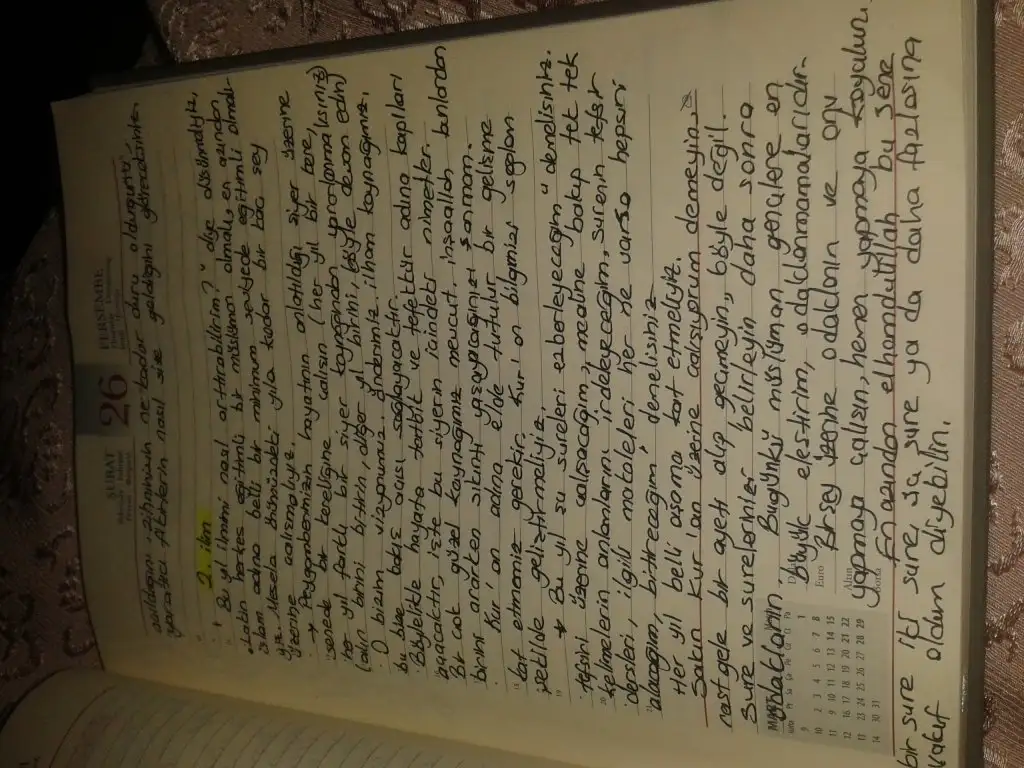 ŞUBAT 26 PERŞEMBE
açıldığını, zihninizin ne kadar duru olduğunu,
yaratıcı fikirlerin nasıl size geldiğini göreceksiniz.
2. ilim
* Bu yıl ilmimi nasıl arttırabilirim? diye düşünmeliyiz,
zaten herkes eğitimli bir müslüman olmalı, en azından
islam adına belli bir minimum seviyede eğitimli olmalı-
yız. Mesela önümüzdeki yıla kadar bir kaç şey üzerine
üzerine çalışmalıyız.
→ Peygamberimizin hayatının anlatıldığı siyer
senede bir kereliğine çalışın (her yıl bir kere,
her yıl farklı bir siyer kaynağından yararlanmalısınız)
(alın birini bitirin, diğer yıl birini, böyle devam edin)
O bizim vizyonumuz, önderimiz, ilham kaynağımız.
bu bize bakış açısı sağlayacaktır.
Böylelikle hayata tatbik ve tefekkür adına kapılar
açacaktır, işte bu siyerin içindeki nimetler.
Bir çok güzel kaynağımız mevcut, inşaallah bunlardan
birini ararken sıkıntı yaşayacağınızı sanmam.
Kur'an adına elde tutulur bir gelişme
kat etmemiz gerekir. Kur'an bilgimizi sağlam
şekilde geliştirmeliyiz.
* Bu yıl şu sureleri ezberleyeceğim " demelisiniz.
tefsiri üzerine çalışacağım, mealine bakıp tek tek
kelimelerin anlamlarını irdeleyeceğim, surenin tefsir
dersleri, ilgili makaleleri her ne varsa hepsini
alacağım, bitireceğim" demelisiniz
Her yıl belli aşama kat etmeliyiz.
Sakın Kur'an üzerine çalışıyorum demeyin,
rastgele bir ayeti alıp geçmeyin, böyle değil.
Sure ve surelerinizi belirleyin daha sonra
odaklanın. Bugünkü müslüman gençlere en
büyük eleştirim, odaklanmamalarıdır.
Birşey üzerine odaklanın ve onu
yapmaya çalışın, hemen yapmaya koyulun.
En azından elhamdulillah bu sene
bir sure iki sure ya da daha fazlasına
vakıf oldum diyebilin.
MART
1
2 3 4 5 6 7 8
9 10 11 12 13 14 15
16 17 18 19 20 21 22
23 24 25 26 27 28 29
30 31
Euro
Altın